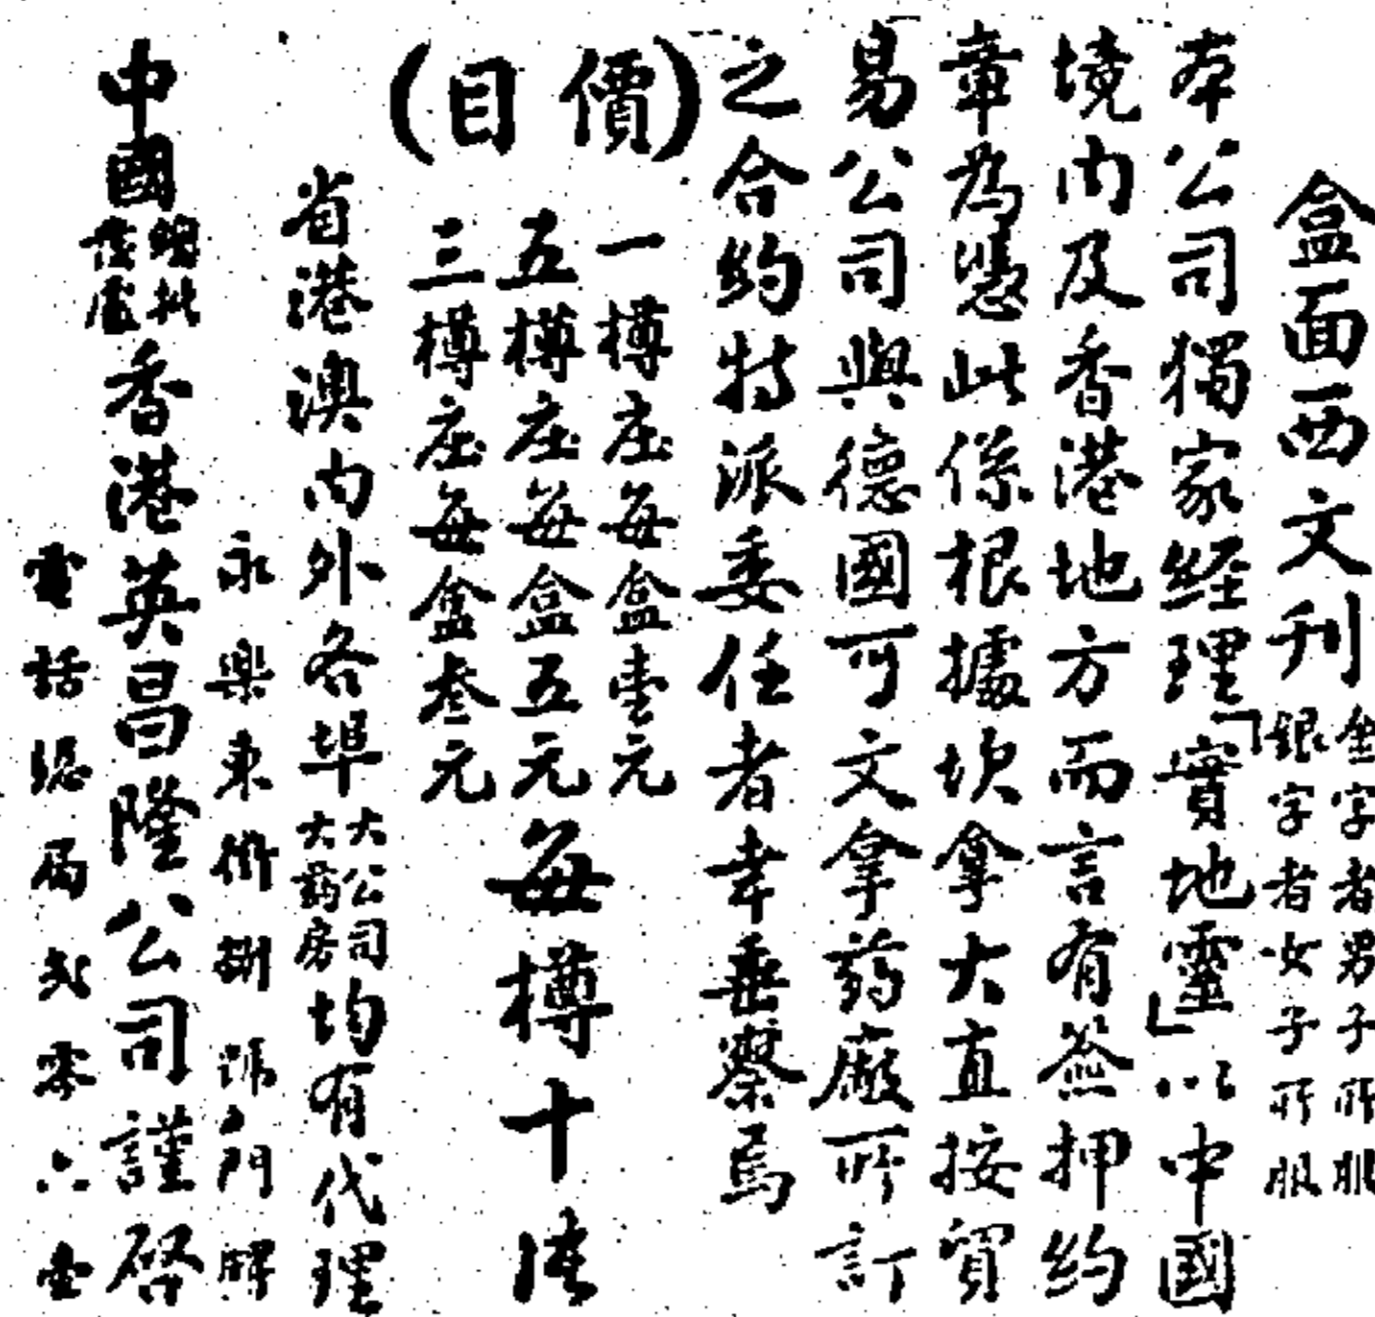 盒面西文刊金字者男子所服銀字者女子所服
本公司獨家經理「實地靈」以中國
境內及香港地方而言有簽押約
章為憑此係根據坎拿大直接貿
易公司與德國可文拿藥廠所訂
之合約特派委任者幸垂察焉
(價目)
一樽庄每盒壹元
五樽庄每盒五元
三樽庄每盒叁元
每樽十片
省港澳內外各埠大公司大药房均有代理
永樂東街捌號門牌
中國總批發處香港英昌隆公司謹啓
電話總局弍零六壹